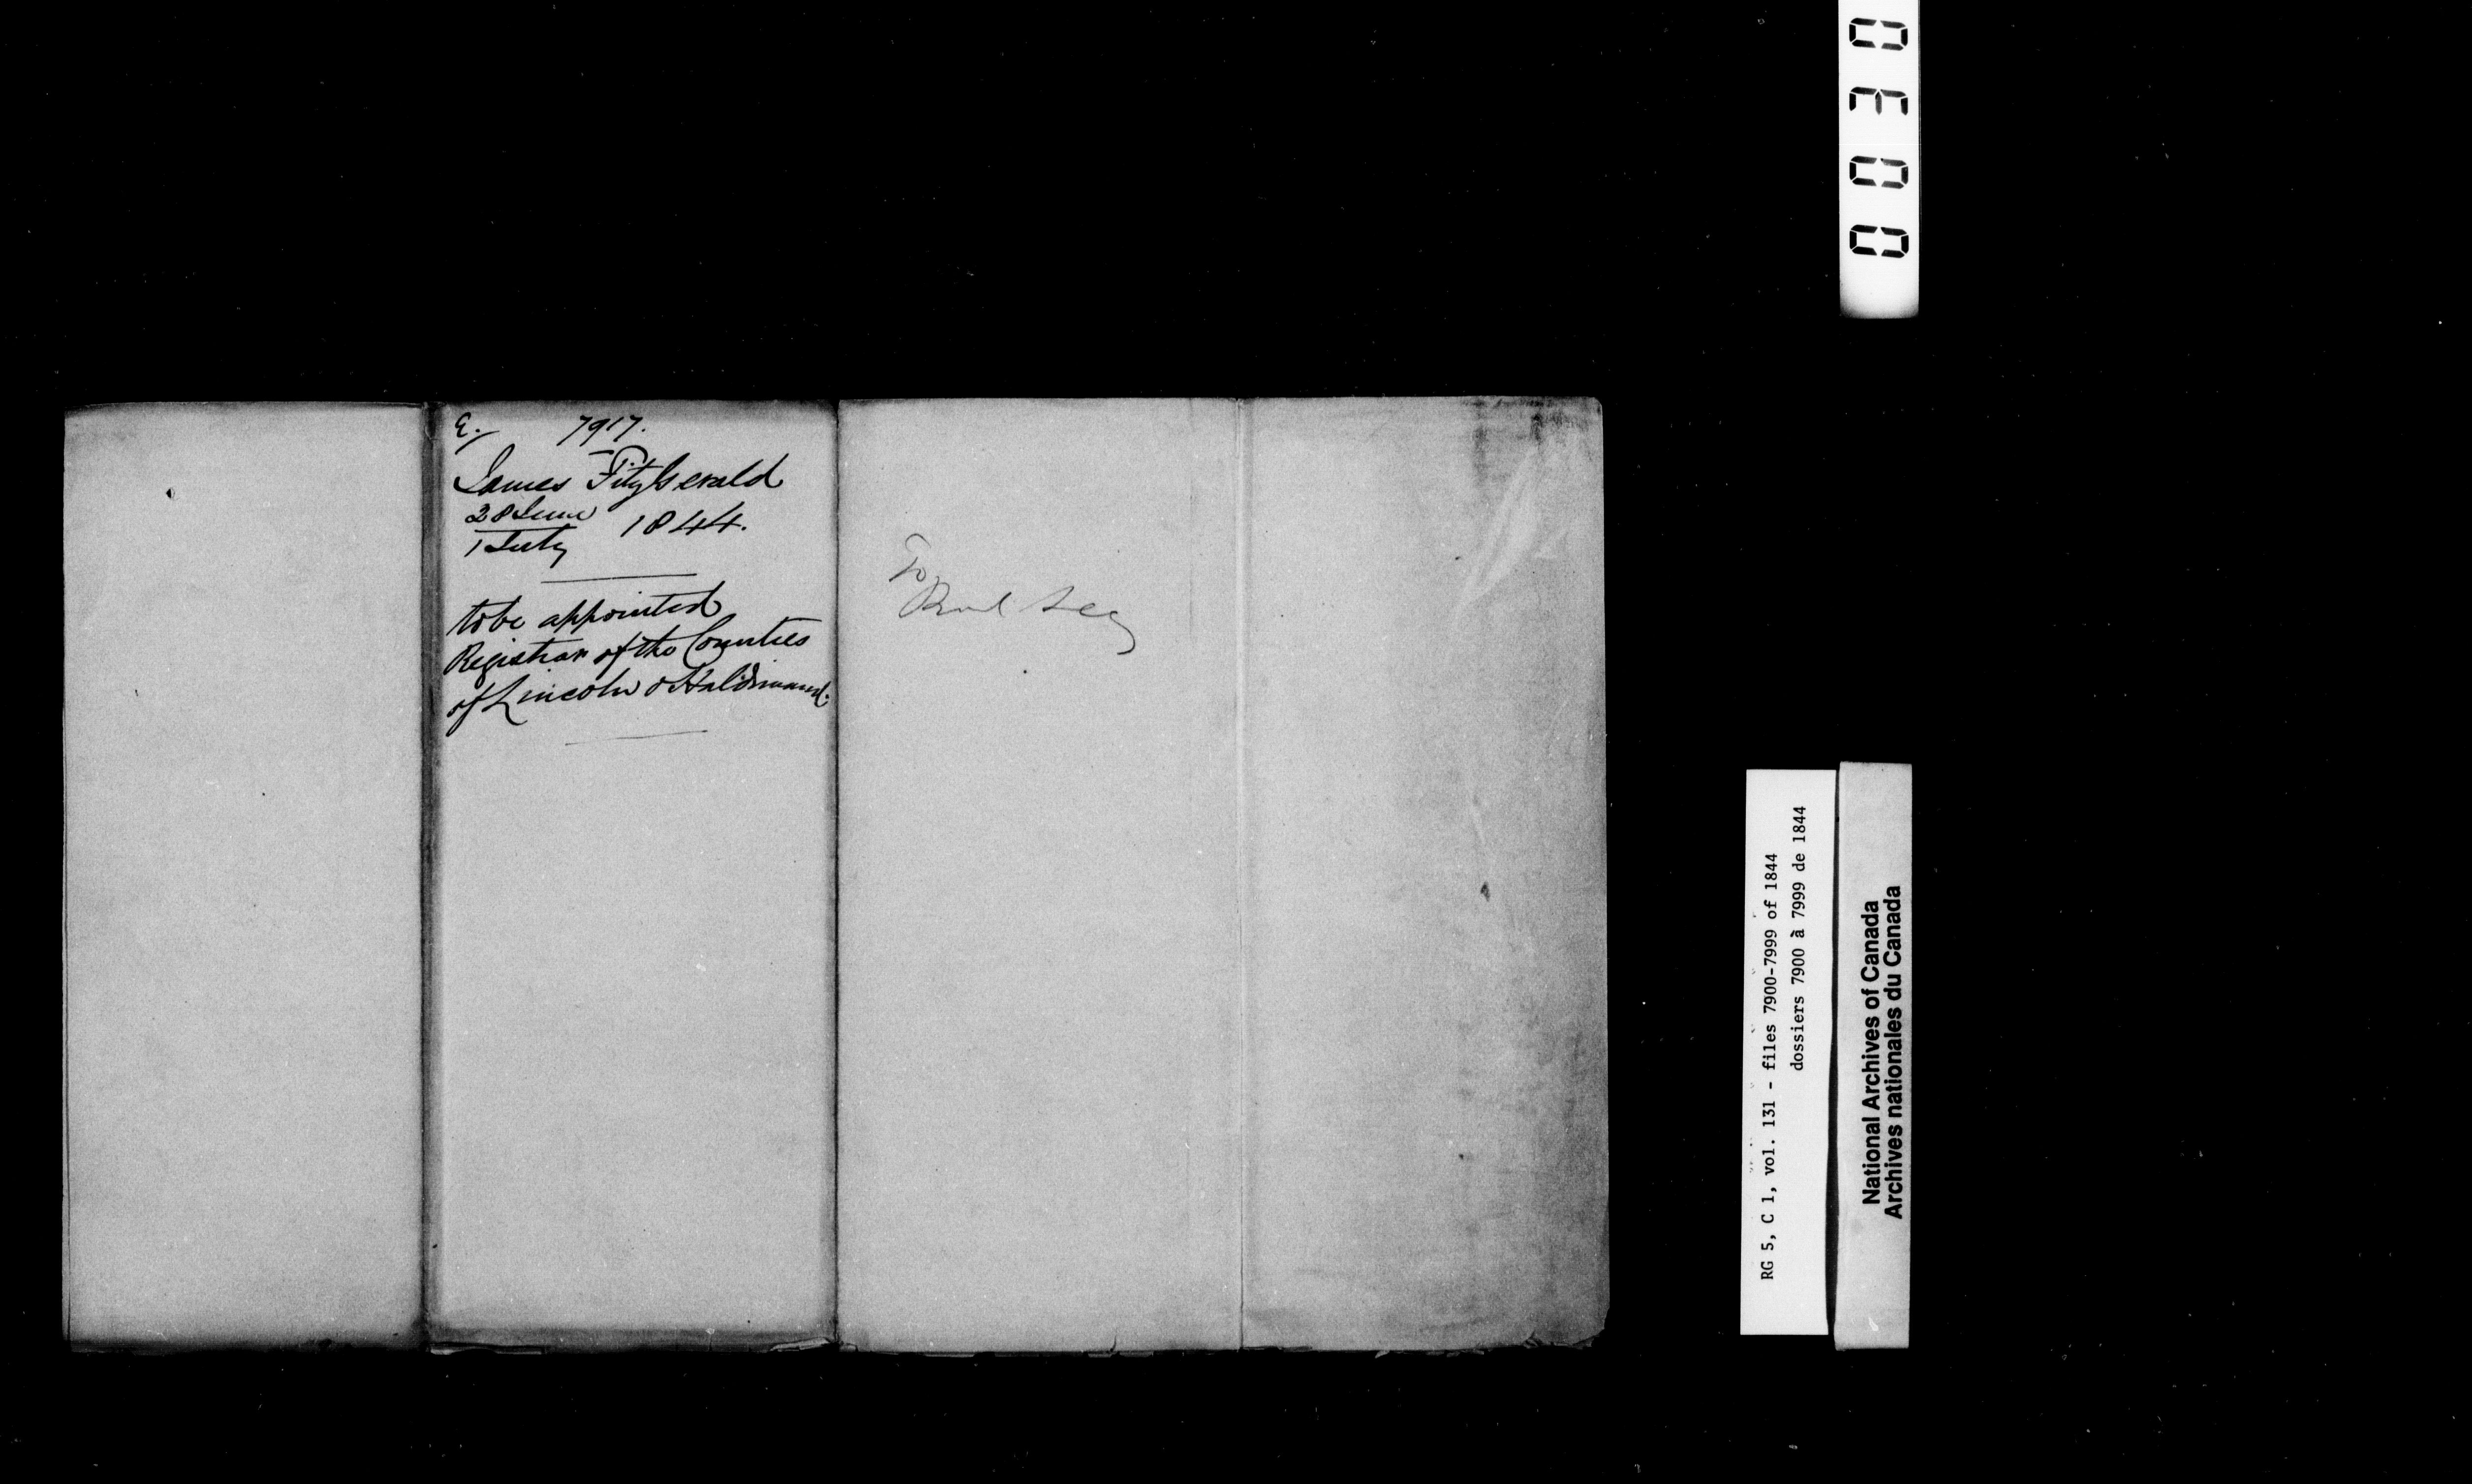 E. 7917.
James FitzGerald
28 June
1 July 1844.
to be appointed
Registrar of the Counties
of Lincoln & Haldimand.
To
Secy
0030
RG 5, C 1, vol. 131 - files 7900-7999 of 1844
dossiers 7900 à 7999 de 1844
National Archives of Canada
Archives nationales du Canada